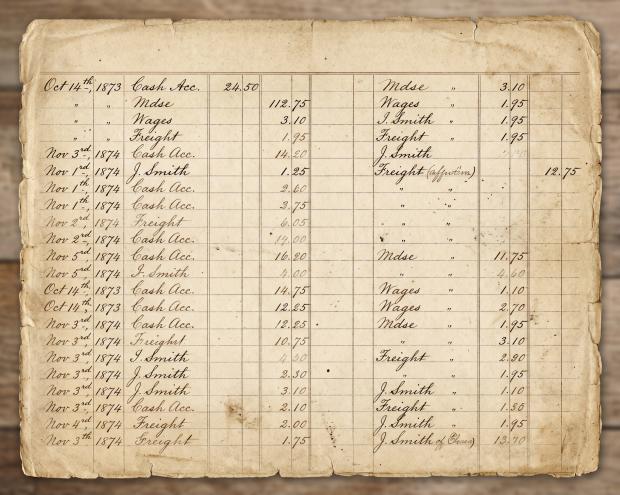 Oct 14th, 1873 Cash Acc. 24.50 Mdse " 3.10
" " Mdse 112.75 Wages " 1.95
" " Wages 3.10 I. Smith " 1.95
" " Freight 1.95 Freight " 1.95
Nov 3rd, 1874 Cash Acc. 14.20 J. Smith
Nov 1rd, 1874 J. Smith 1.25 Freight 12.75
Nov 1th, 1874 Cash Acc. 2.60 " "
Nov 1th, 1874 Cash Acc. 3.75 " "
Nov 2rd, 1874 Freight 6.05 " "
Nov 2rd, 1874 Cash Acc. " "
Nov 5rd, 1874 Cash Acc. 16.20 Mdse " 11.75
Nov 5rd, 1874 I. Smith 4.00 " " 4.60
Oct 14th, 1873 Cash Acc. 14.75 Wages " 1.10
Oct 14th, 1873 Cash Acc. 12.25 Wages " 2.70
Nov 3rd, 1874 Cash Acc. 12.25 Mdse " 1.95
Nov 3rd, 1874 Freight 10.75 " " 3.10
Nov 3rd, 1874 I. Smith Freight " 2.20
Nov 3rd, 1874 J. Smith 2.30 " " 1.95
Nov 3rd, 1874 J. Smith 3.10 J. Smith " 1.10
Nov 3rd, 1874 Cash Acc. 2.10 Freight " 1.30
Nov 4rd, 1874 Freight 2.00 J. Smith " 1.95
Nov 3th, 1874 Freight 1.75 J. Smith of 13.70